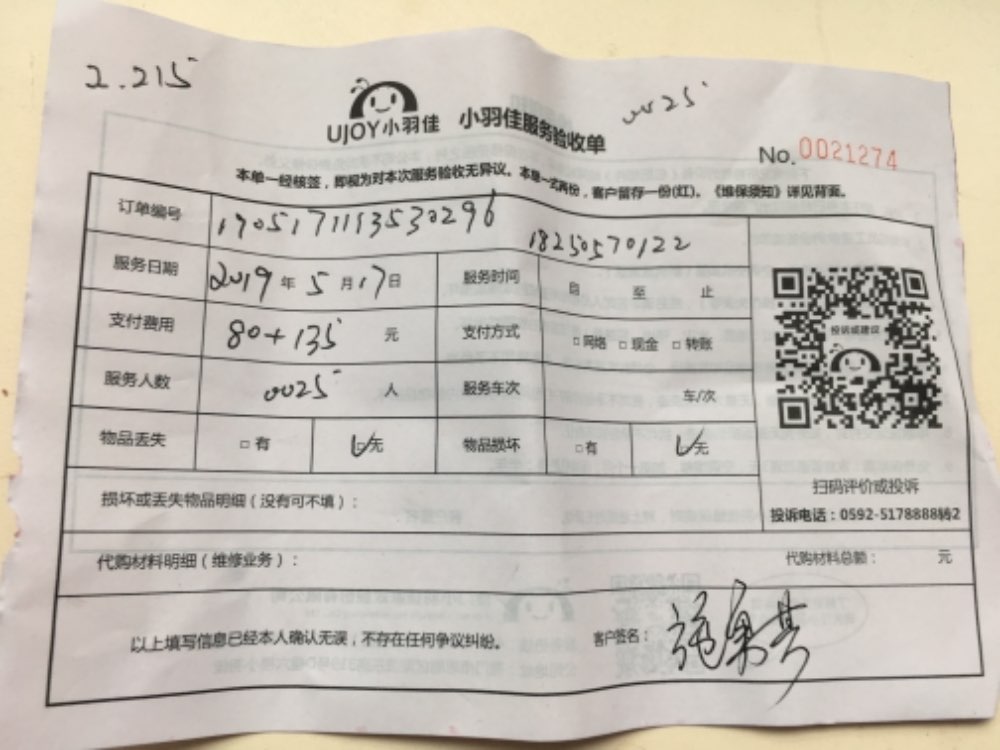 2.215
0025
UJOY小羽佳 小羽佳服务验收单
No. 0021274
本单一经核签，即视为对本次服务验收无异议。本单一式两份，客户留存一份(红)。《维保须知》详见背面。
订单编号 1905171113530296
18250570122
服务日期 2019年5月17日 服务时间 自 至 止
支付费用 80+135 元 支付方式 □网络 □现金 □转账
服务人数 0025 人 服务车次 车/次
物品丢失 □有 ☑无 物品损坏 □有 ☑无
投诉或建议
扫码评价或投诉
投诉电话：0592-5178888转2
损坏或丢失物品明细（没有可不填）：
代购材料明细（维修业务）： 代购材料总额： 元
以上填写信息已经本人确认无误，不存在任何争议纠纷。 客户签名：